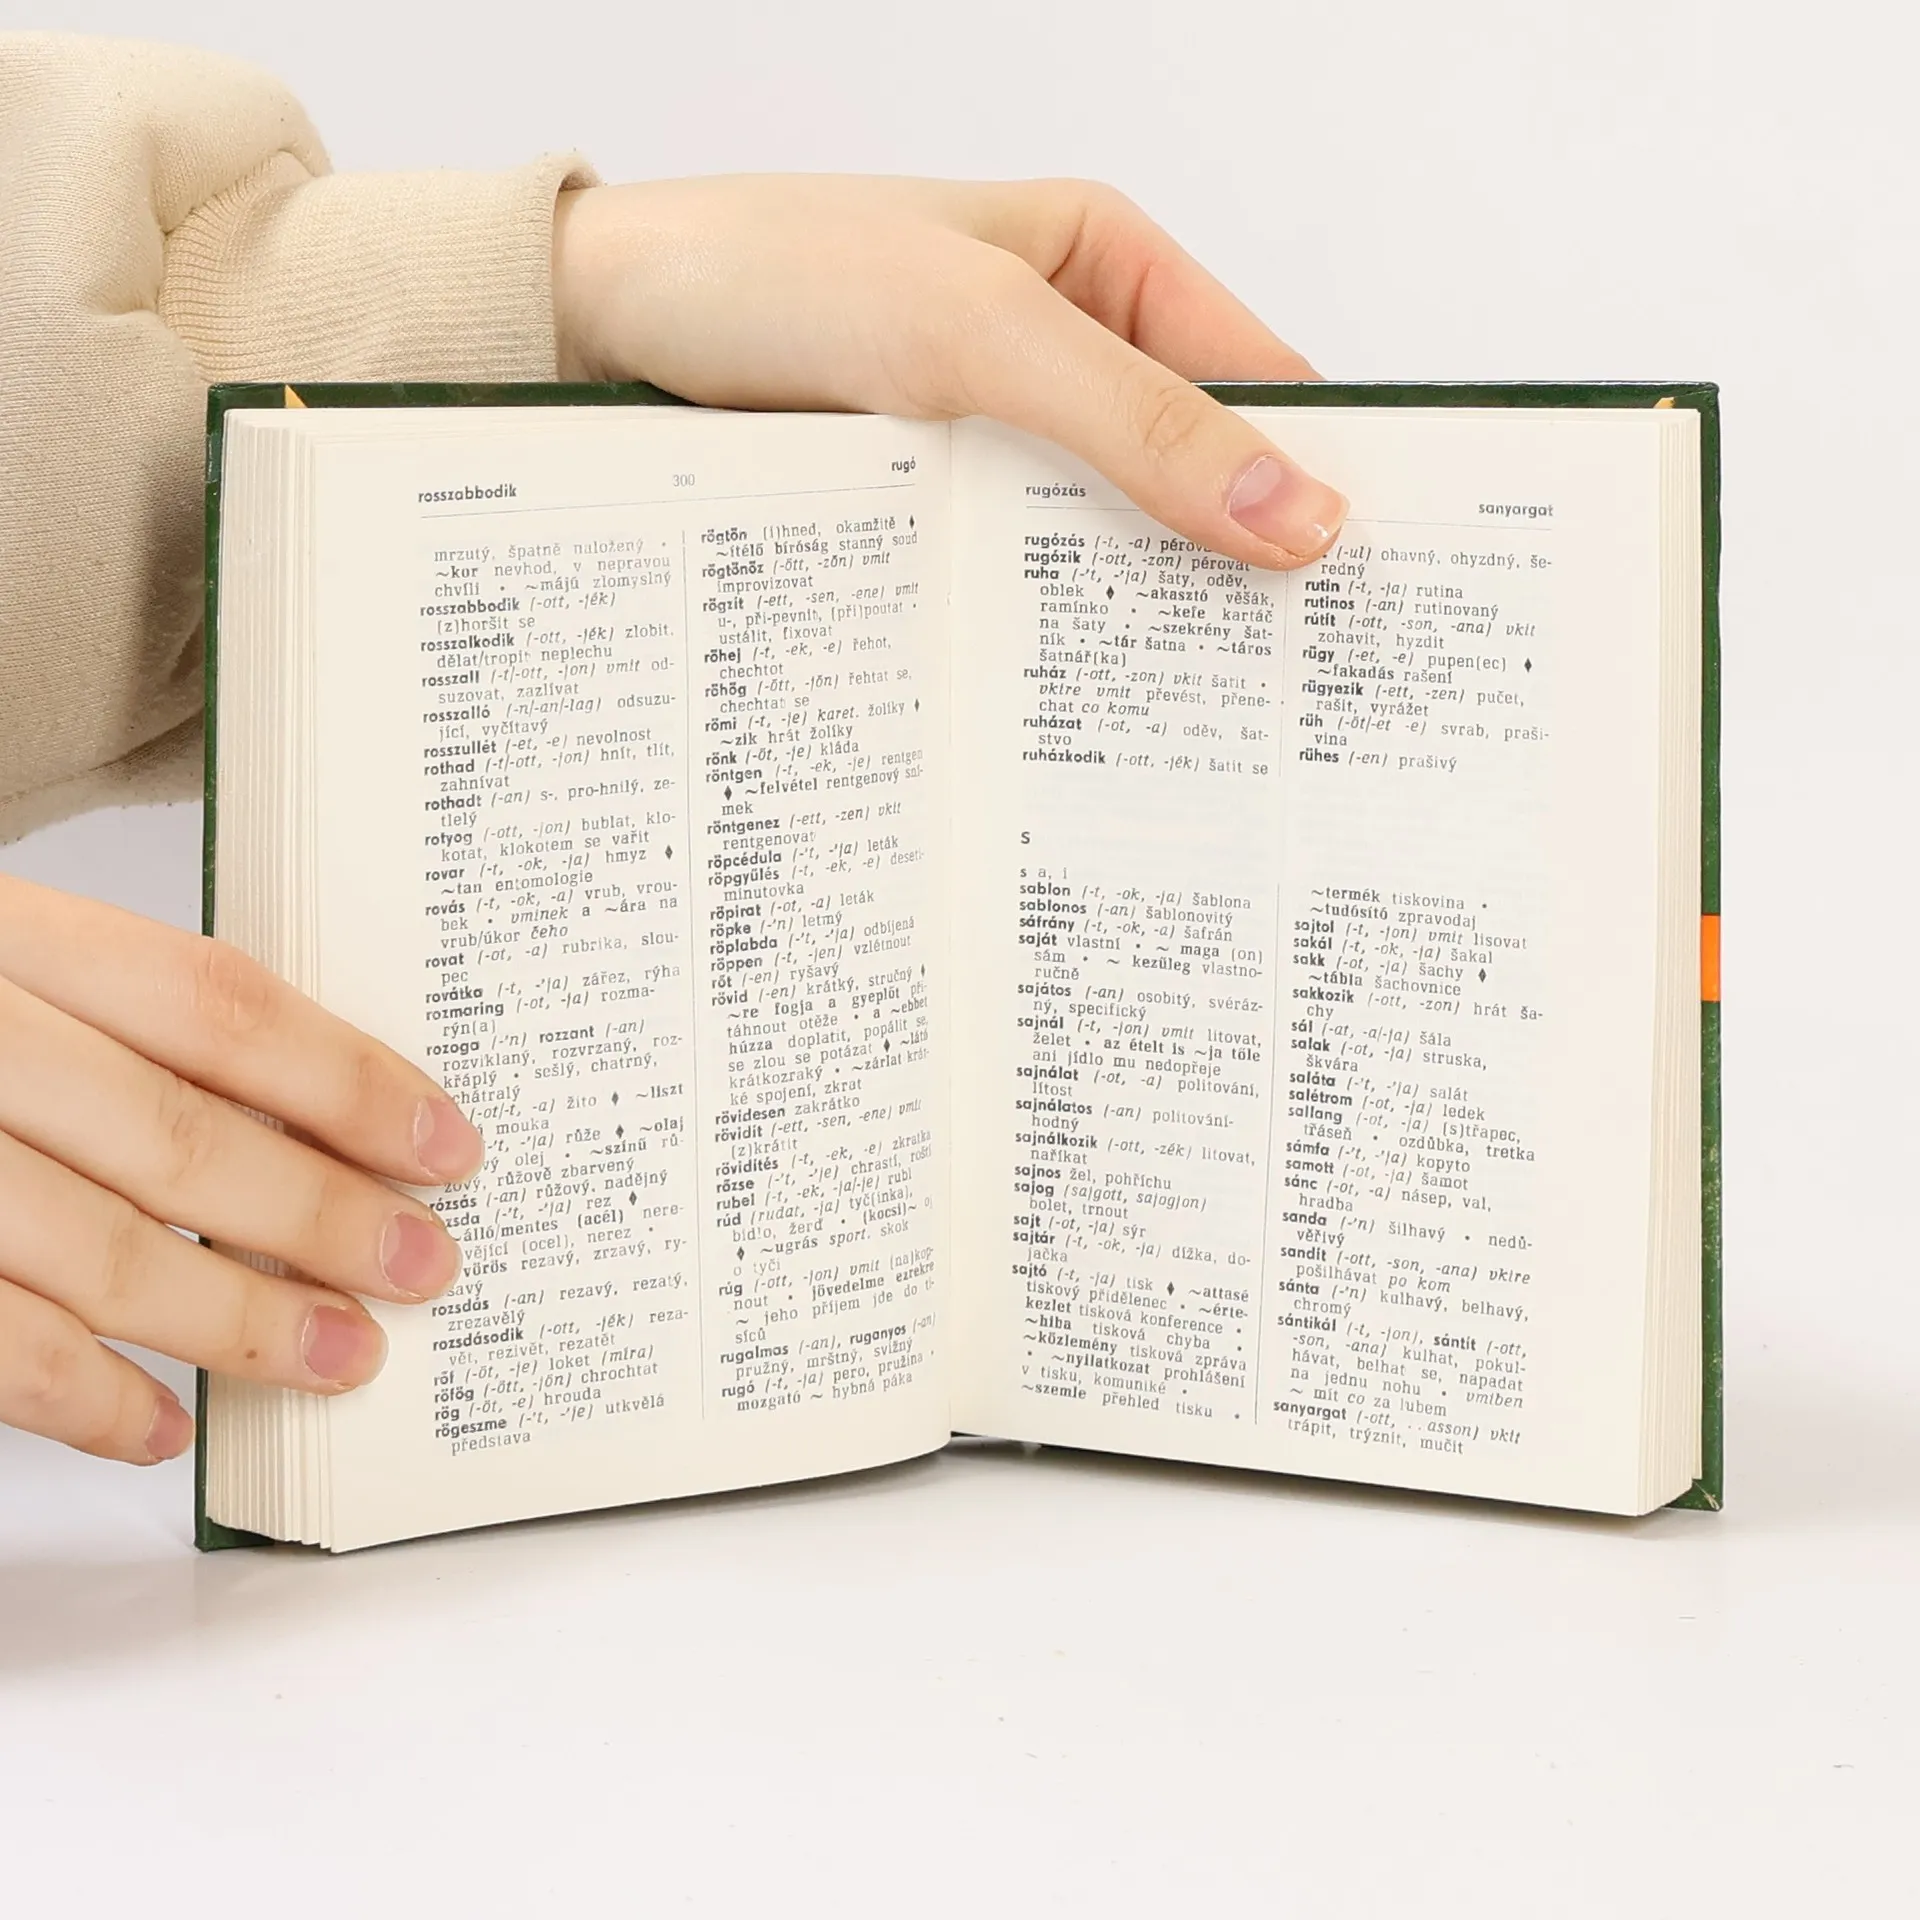 rosszabbodik 300 rugó
mrzutý, špatně naložený •
~kor nevhod, v nepravou
chvíli • ~májú zlomyslný
rosszabbodik (-ott, -jék)
(z)horšit se
rosszalkodik (-ott, -jék) zlobit,
dělat/tropit neplechu
rosszall (-t/-ott, -jon) vmit od-
suzovat, zazlívat
rosszalló (-n/-an/-lag) odsuzu-
jící, vyčítavý
rosszullét (-et, -e) nevolnost
rothad (-t/-ott, -jon) hnít, tlít,
zahnívat
rothadt (-an) s-, pro-hnilý, ze-
tlelý
rotyog (-ott, -jon) bublat, klo-
kotat, klokotem se vařit
rovar (-t, -ok, -ja) hmyz ♦
~tan entomologie
rovás (-t, -ok, -a) vrub, vrou-
bek • vminek a ~ára na
vrub/úkor čeho
rovat (-ot, -a) rubrika, slou-
pec
rovátka (-t, -'ja) zářez, rýha
rozmaring (-ot, -ja) rozma-
rýn(a)
rozoga (-'n) rozzant (-an)
rozviklaný, rozvrzaný, roz-
křáplý • sešlý, chatrný,
chátralý
(-ot/-t, -a) žito ♦ ~liszt
mouka
(-'t, -'ja) růže ♦ ~olaj
olej • ~színű rů-
žový, růžově zbarvený
rózsás (-an) růžový, nadějný
(-'t, -'ja) rez ♦
~álló/mentes (acél) nere-
vějící (ocel), nerez •
vörös rezavý, zrzavý, ry-
šavý
rozsdás (-an) rezavý, rezatý,
zrezavělý
rozsdásodik (-ott, -jék) reza-
vět, rezivět, rezatět
rőf (-öt, -je) loket (míra)
röfög (-ött, -jön) chrochtat
rög (-öt, -e) hrouda
rögeszme (-'t, -'je) utkvělá
představa
rögtön (i)hned, okamžitě ♦
~ítélő bíróság stanný soud
rögtönöz (-ött, -zön) vmit
improvizovat
rögzít (-ett, -sen, -ene) vmit
u-, při-pevnit, (při)poutat •
ustálit, fixovat
röhej (-t, -ek, -e) řehot,
chechtot
röhög (-ött, -jön) řehtat se,
chechtat se
römi (-t, -je) karet. žolíky ♦
~zik hrát žolíky
rönk (-öt, -je) kláda
röntgen (-t, -ek, -je) rentgen
♦ ~felvétel rentgenový sní-
mek
röntgenez (-ett, -zen) vkit
rentgenovat
röpcédula (-'t, -'ja) leták
röpgyűlés (-t, -ek, -e) deseti-
minutovka
röpirat (-ot, -a) leták
röpke (-'n) letmý
röplabda (-'t, -'ja) odbíjená
röppen (-t, -jen) vzlétnout
rőt (-en) ryšavý
rövid (-en) krátký, stručný ♦
~re fogja a gyeplőt při-
táhnout otěže • a ~ebbet
húzza doplatit, popálit se,
se zlou se potázat ♦ ~látó
krátkozraký • ~zárlat krát-
ké spojení, zkrat
rövidesen zakrátko
rövidít (-ett, -sen, -ene) vmit
(z)krátit
rövidítés (-t, -ek, -e) zkratka
rőzse (-'t, -'je) chrastí, roští
rubel (-t, -ek, -ja/-je) rubl
rúd (rudat, -ja) tyč(inka),
bidlo, žerď • (kocsi)~ oj
♦ ~ugrás sport. skok
o tyči
rúg (-ott, -jon) vmit (na)kop-
nout • jövedelme ezrekre
~ jeho příjem jde do ti-
síců
rugalmas (-an), ruganyos (-an)
pružný, mrštný, svižný
rugó (-t, -ja) pero, pružina •
mozgató ~ hybná páka
rugózás sanyargat
rugózás (-t, -a)
rugózik (-ott, -zon) pérovat
ruha (-'t, -'ja) šaty, oděv,
oblek ♦ ~akasztó věšák,
ramínko • ~kefe kartáč
na šaty • ~szekrény šat-
ník • ~tár šatna • ~táros
šatnář(ka)
ruház (-ott, -zon) vkit šatit •
vkire vmit převést, přene-
chat co komu
ruházat (-ot, -a) oděv, šat-
stvo
ruházkodik (-ott, -jék) šatit se
(-ul) ohavný, ohyzdný, še-
redný
rutin (-t, -ja) rutina
rutinos (-an) rutinovaný
rútít (-ott, -son, -ana) vkit
zohavit, hyzdit
rügy (-et, -e) pupen(ec) ♦
~fakadás rašení
rügyezik (-ett, -zen) pučet,
rašit, vyrážet
rüh (-öt/-et -e) svrab, praši-
vina
rühes (-en) prašivý
S
s a, i
sablon (-t, -ok, -ja) šablona
sablonos (-an) šablonovitý
sáfrány (-t, -ok, -a) šafrán
saját vlastní • ~ maga (on)
sám • ~ kezűleg vlastno-
ručně
sajátos (-an) osobitý, svéráz-
ný, specifický
sajnál (-t, -jon) vmit litovat,
želet • az ételt is ~ja tőle
ani jídlo mu nedopřeje
sajnálat (-ot, -a) politování,
lítost
sajnálatos (-an) politování-
hodný
sajnálkozik (-ott, -zék) litovat,
naříkat
sajnos žel, pohříchu
sajog (sajgott, sajogjon)
bolet, trnout
sajt (-ot, -ja) sýr
sajtár (-t, -ok, -ja) dížka, do-
jačka
sajtó (-t, -ja) tisk ♦ ~attasé
tiskový přidělenec • ~érte-
kezlet tisková konference •
~hiba tisková chyba •
~közlemény tisková zpráva
• ~nyilatkozat prohlášení
v tisku, komuniké •
~szemle přehled tisku •
~termék tiskovina •
~tudósító zpravodaj
sajtol (-t, -jon) vmit lisovat
sakál (-t, -ok, -ja) šakal
sakk (-ot, -ja) šachy ♦
~tábla šachovnice
sakkozik (-ott, -zon) hrát ša-
chy
sál (-at, -a/-ja) šála
salak (-ot, -ja) struska,
škvára
saláta (-'t, -'ja) salát
salétrom (-ot, -ja) ledek
sallang (-ot, -ja) (s)třapec,
třáseň • ozdůbka, tretka
sámfa (-'t, -'ja) kopyto
samott (-ot, -ja) šamot
sánc (-ot, -a) násep, val,
hradba
sanda (-'n) šilhavý • nedů-
věřivý
sandít (-ott, -son, -ana) vkire
pošilhávat po kom
sánta (-'n) kulhavý, belhavý,
chromý
sántikál (-t, -jon), sántít (-ott,
-son, -ana) kulhat, pokul-
hávat, belhat se, napadat
na jednu nohu • vmiben
~ mít co za lubem
sanyargat (-ott, ..asson) vkit
trápit, trýznit, mučit